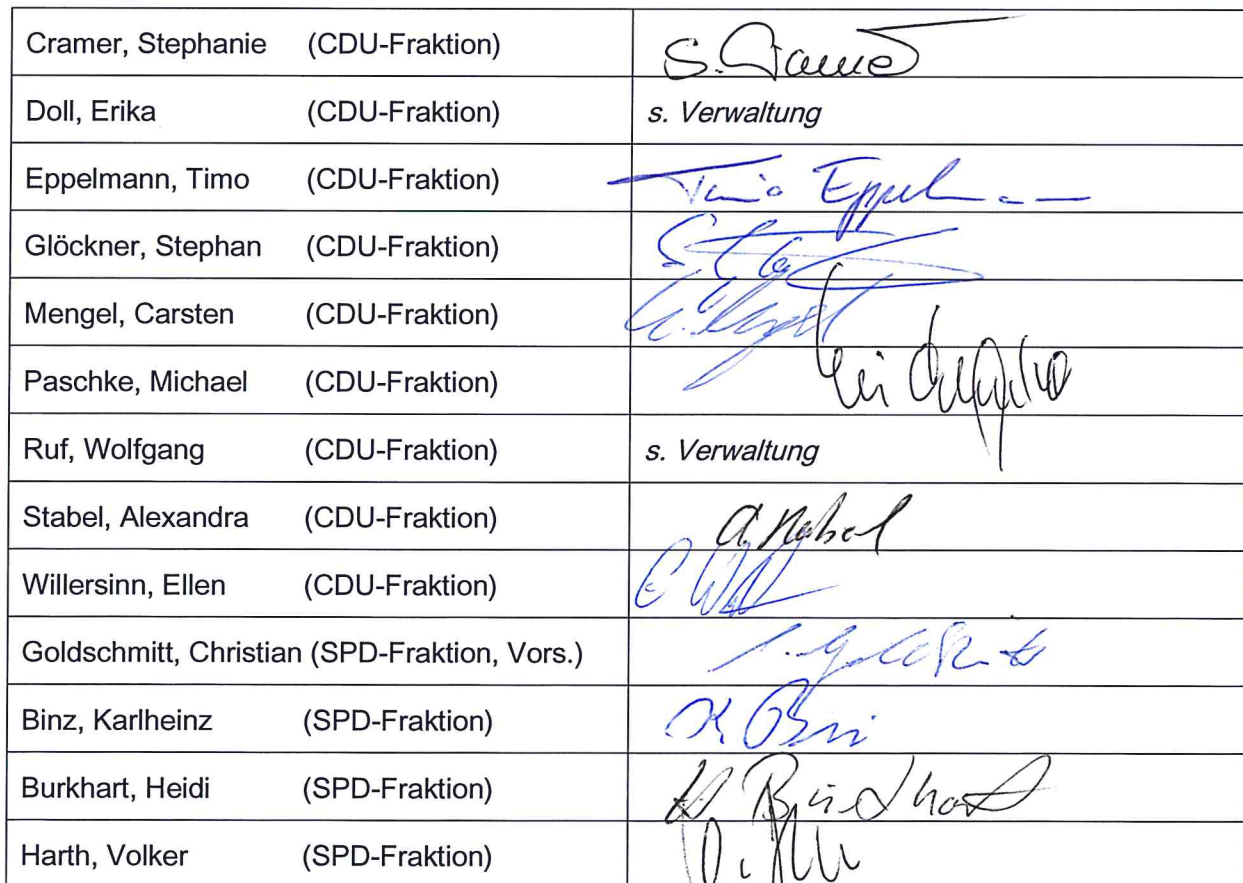 Cramer, Stephanie (CDU-Fraktion) S. Cramer
Doll, Erika (CDU-Fraktion) s. Verwaltung
Eppelmann, Timo (CDU-Fraktion) Timo Eppelmann
Glöckner, Stephan (CDU-Fraktion)
Mengel, Carsten (CDU-Fraktion)
Paschke, Michael (CDU-Fraktion)
Ruf, Wolfgang (CDU-Fraktion) s. Verwaltung
Stabel, Alexandra (CDU-Fraktion)
Willersinn, Ellen (CDU-Fraktion)
Goldschmitt, Christian (SPD-Fraktion, Vors.)
Binz, Karlheinz (SPD-Fraktion)
Burkhart, Heidi (SPD-Fraktion) H. Burkhart
Harth, Volker (SPD-Fraktion)